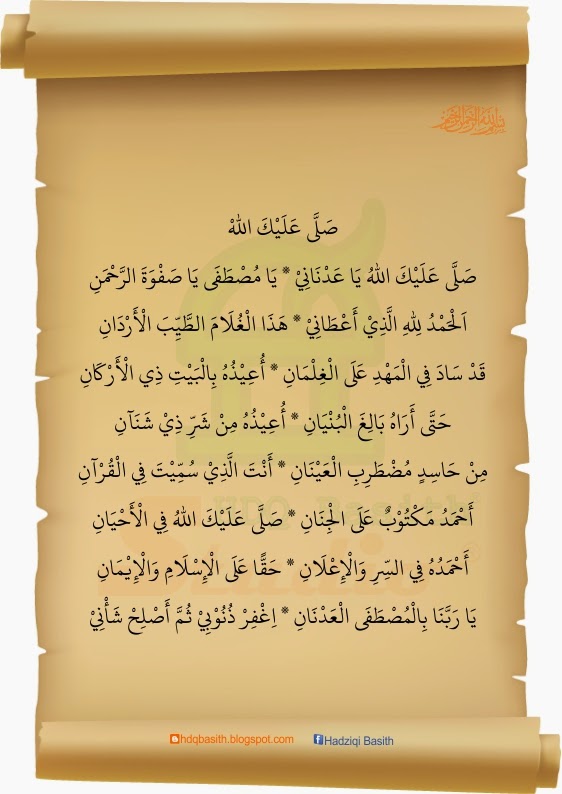 بسم الله الرحمن الرحيم
صَلَّى عَلَيْكَ اللهْ
صَلَّى عَلَيْكَ اللهُ يَا عَدْنَانِيْ * يَا مُصْطَفَى يَا صَفْوَةَ الرَّحْمَنِ
اَلْحَمْدُ لِلهِ الَّذِيْ أَعْطَانِيْ * هَذَا الْغُلَامَ الطَّيِّبَ الْأَرْدَانِ
قَدْ سَادَ فِي الْمَهْدِ عَلَى الْغِلْمَانِ * أُعِيْذُهُ بِالْبَيْتِ ذِي الْأَرْكَانِ
حَتَّى أَرَاهُ بَالِغَ الْبُنْيَانِ * أُعِيْذُهُ مِنْ شَرِّ ذِيْ شَنَآنِ
مِنْ حَاسِدٍ مُضْطَرِبِ الْعَيْنَانِ * أَنْتَ الَّذِيْ سُمِّيْتَ فِي الْقُرْآنِ
أَحْمَدُ مَكْتُوْبٌ عَلَى الْجِنَانِ * صَلَّى عَلَيْكَ اللهُ فِي الْأَحْيَانِ
أَحْمَدُهُ فِي السِّرِ وَالْإِعْلَانِ * حَقًّا عَلَى الْإِسْلَامِ وَالْإِيْمَانِ
يَا رَبَّنَا بِالْمُصْطَفَى الْعَدْنَانِ * اِغْفِرْ ذُنُوْبِيْ ثُمَّ أَصْلِحْ شَأْنِيْ
hdqbasith.blogspot.com Hadziqi Basith